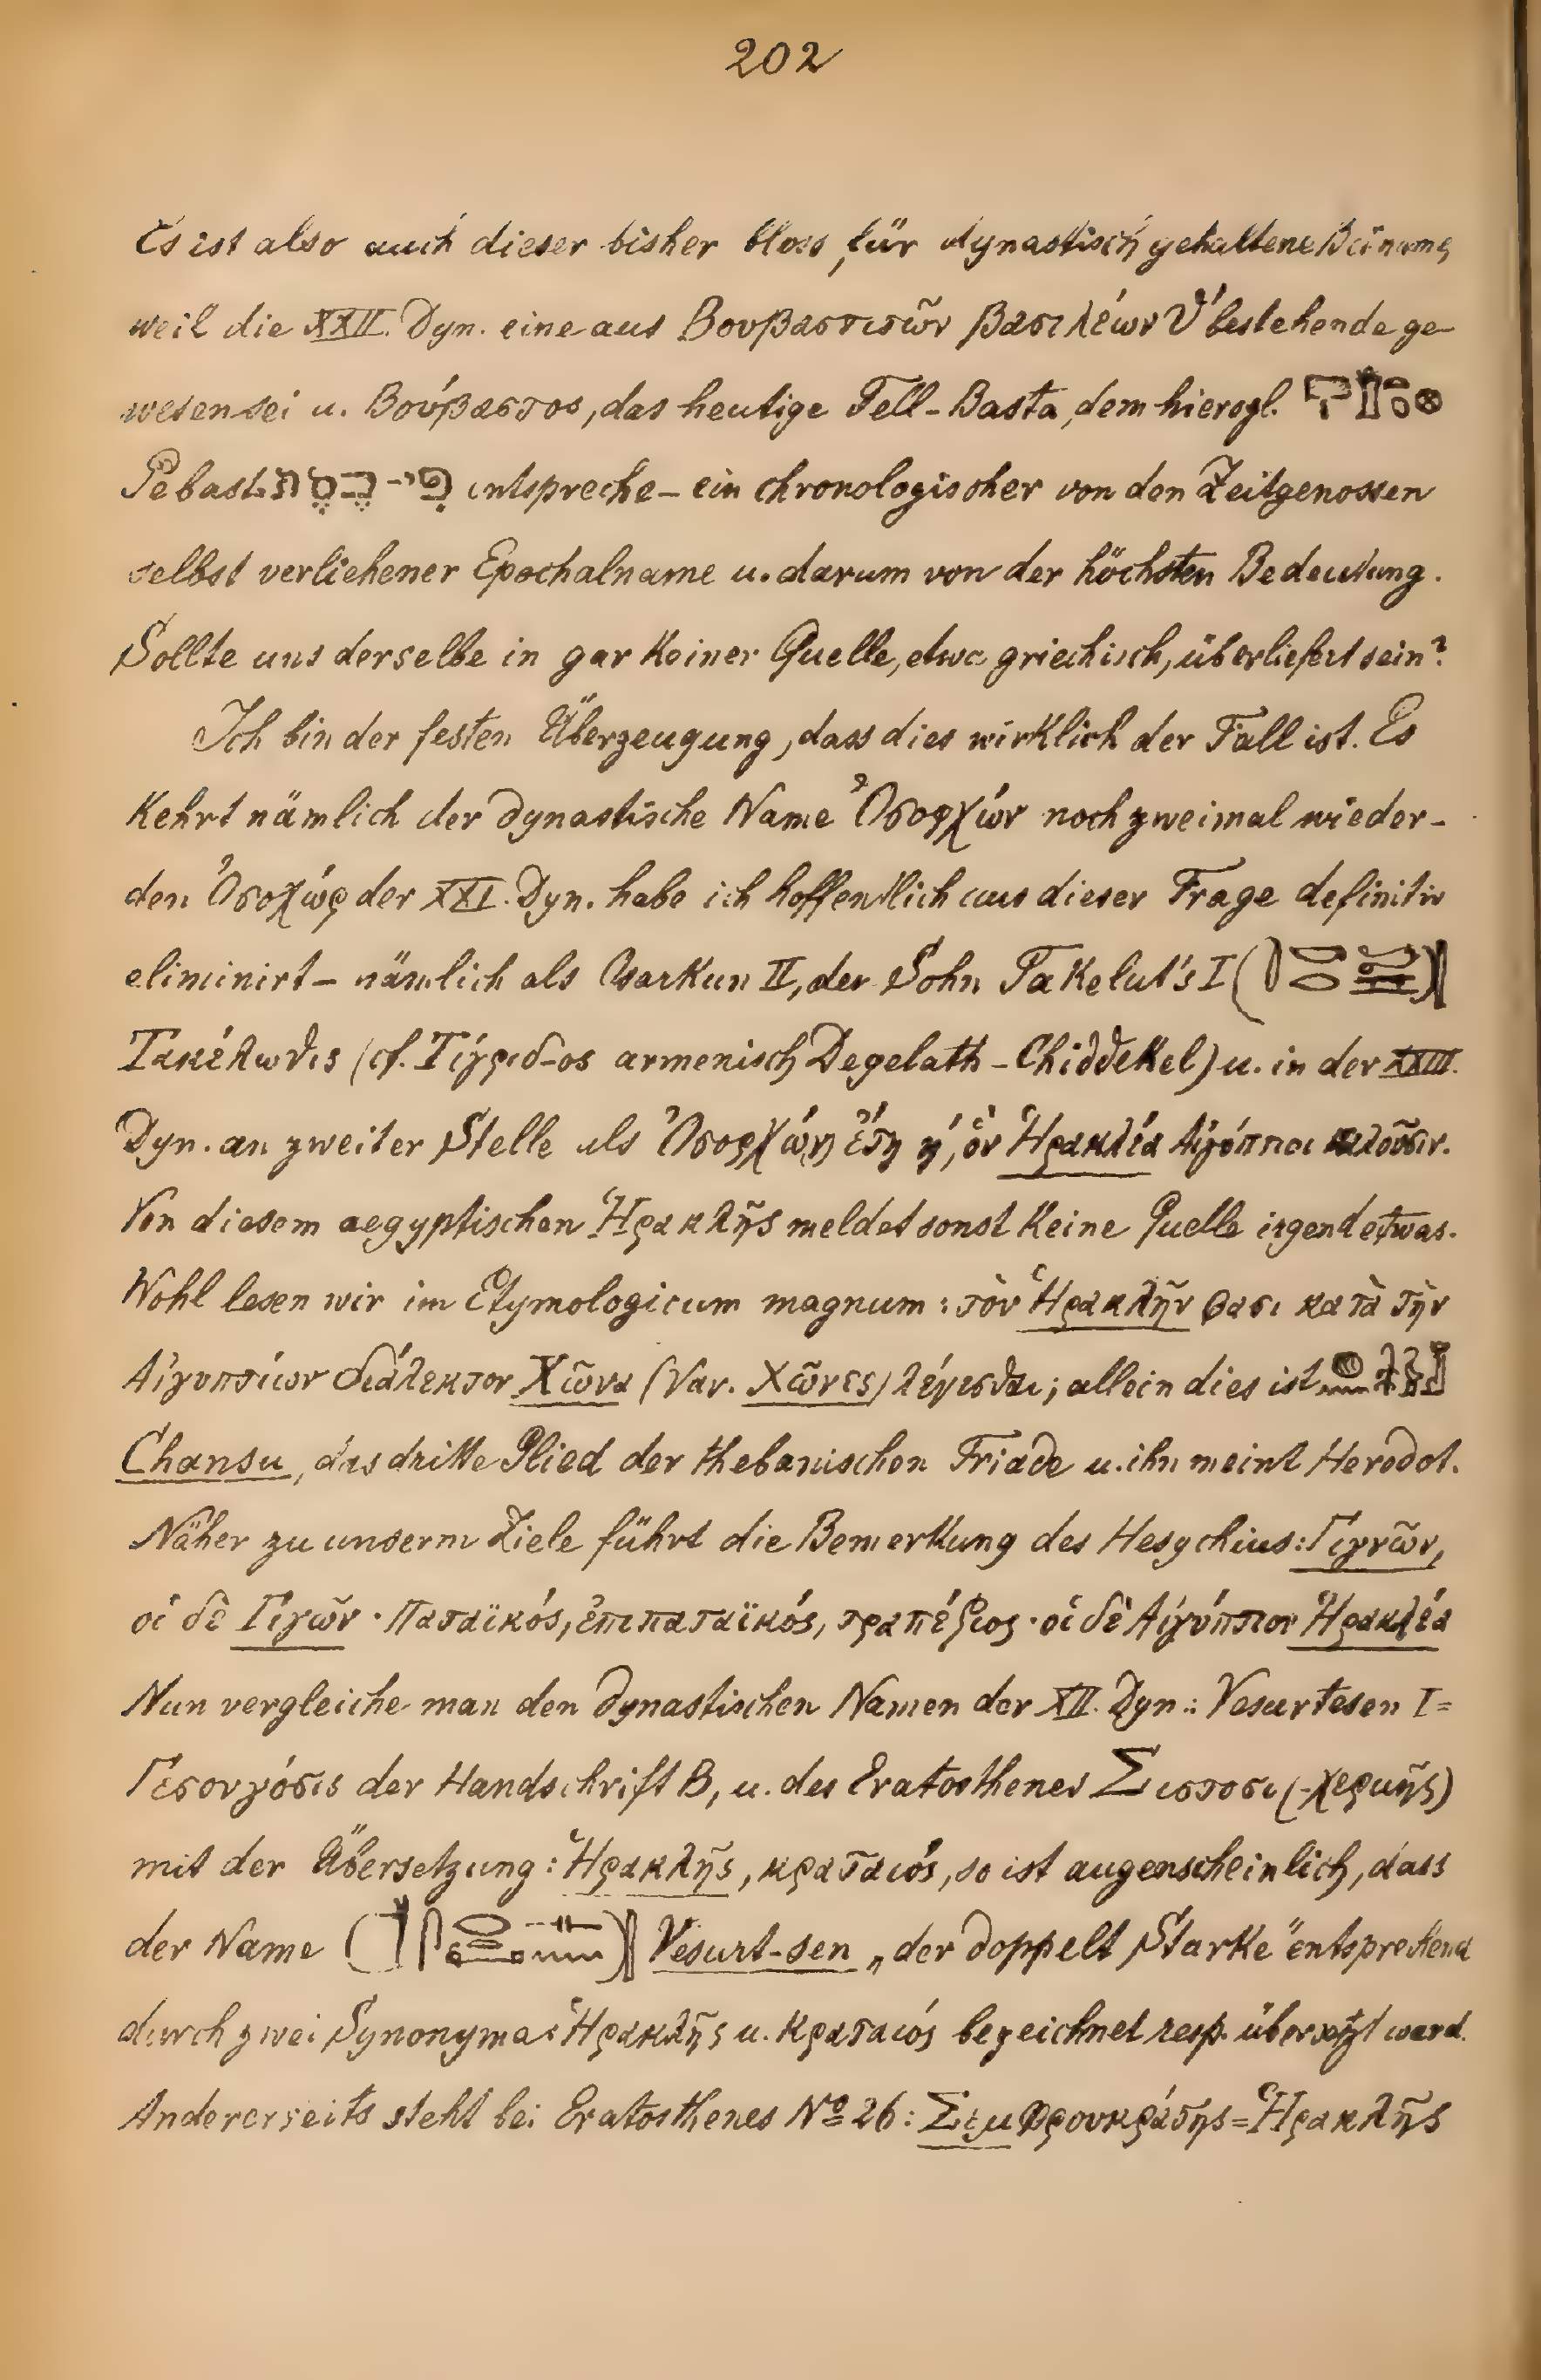 202
Es ist also auch dieser bisher bloss für dynastisch gehaltene Beiname,
weil die XXII. Dyn. eine aus Βουβαστιτῶν βασιλέων θ' bestehende ge-
wesen sei u. Βούβαστος, das heutige Tell-Basta, dem hierogl.
Pebast entspreche – ein chronologischer von den Zeitgenossen
selbst verliehener Epochalname u. darum von der höchsten Bedeutung.
Sollte uns derselbe in gar keiner Quelle, etwa griechisch, überliefert sein?
Ich bin der festen Überzeugung, dass dies wirklich der Fall ist. Es
kehrt nämlich der dynastische Name Ὀσορχών noch zweimal wieder –
den Ὀσοχώρ der XXI. Dyn. habe ich hoffentlich aus dieser Frage definitiv
eliminirt – nämlich als Osarkun II, der Sohn Takelut's I
Τακέλωθις (cf. Τίγριδ-ος armenisch Degelath – Chiddekel) u. in der XXIII.
Dyn. an zweiter Stelle als Ὀσορχών ἔτη η', ὃν Ἡρακλέα Αἰγύπτιοι καλοῦσιν.
Von diesem aegyptischen Ἡρακλῆς meldet sonst keine Quelle irgend etwas.
Wohl lesen wir im Etymologicum magnum: τὸν Ἡρακλῆν φασι κατὰ τὴν
Αἰγυπτίων διάλεκτον Χῶνα (Var. Χῶνες) λέγεσθαι; allein dies ist
Chansu, das dritte Glied der thebanischen Triade u. ihn meint Herodot.
Näher zu unserm Ziele führt die Bemerkung des Hesychius: Γιγνῶν,
οἱ δὲ Γιγῶν · Παταϊκός, ἐπιπαταϊκός, τραπέζιος · οἱ δὲ Αἰγύπτιον Ἡρακλέα
Nun vergleiche man den dynastischen Namen der XII. Dyn.: Vesurtesen I =
Γεσονγόσις der Handschrift B, u. des Eratosthenes Σιστοσι(-χερμῆς)
mit der Übersetzung: Ἡρακλῆς, κραταιός, so ist augenscheinlich, dass
der Name Vesurt-sen „der doppelt Starke" entsprechend
durch zwei Synonyma: Ἡρακλῆς u. κραταιός bezeichnet resp. übersetzt ward.
Andererseits steht bei Eratosthenes Nº 26: Σεμφρουκράτης = Ἡρακλῆς